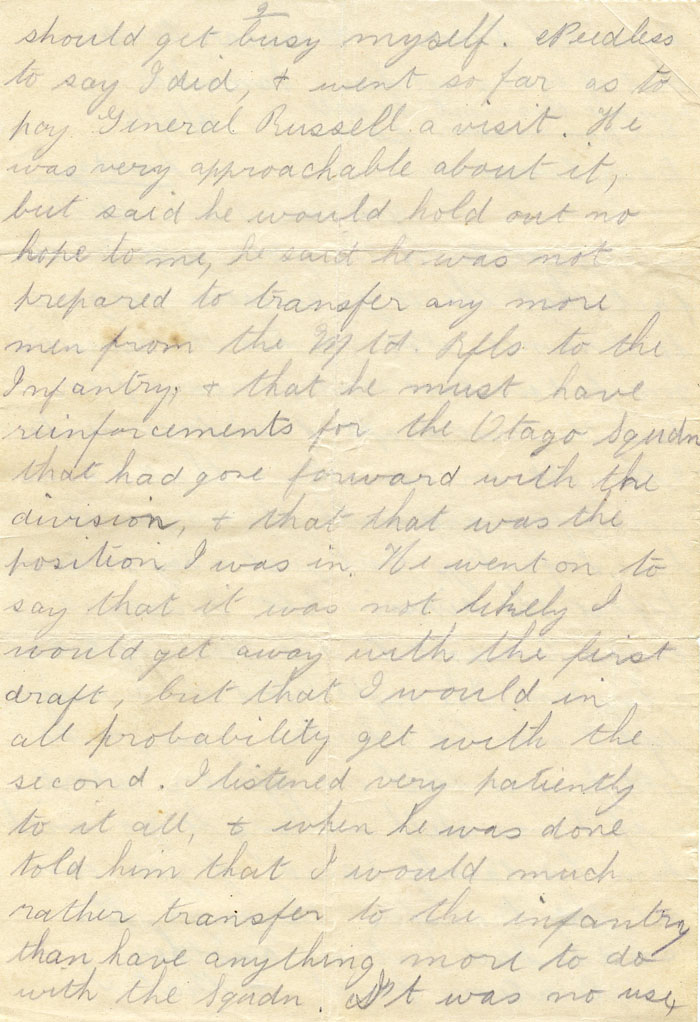 2
should get busy myself. Needless
to say I did, & went so far as to
pay General Russell a visit. He
was very approachable about it,
but said he would hold out no
hope to me, he said he was not
prepared to transfer any more
men from the Mtd. Rfls to the
Infantry, & that he must have
reinforcements for the Otago Squdn
that had gone forward with the
division, & that that was the
position I was in. He went on to
say that it was not likely I
would get away with the first
draft, but that I would in
all probability get with the
second. I listened very patiently
to it all, & when he was done
told him that I would much
rather transfer to the infantry
than have anything more to do
with the Squdn. It was no use,